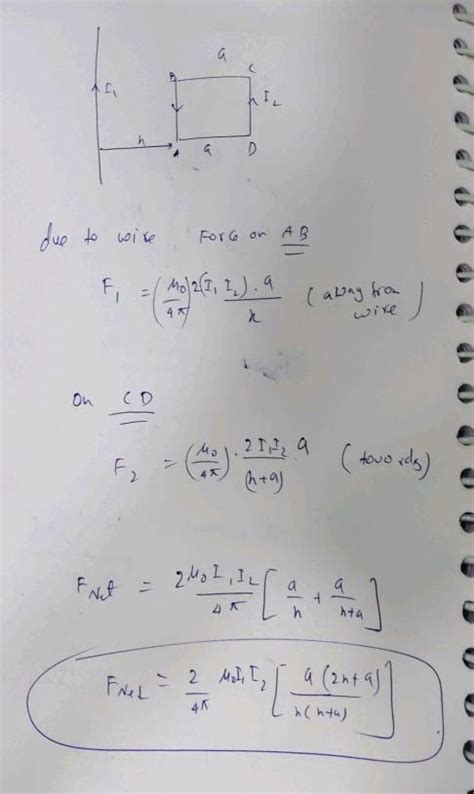 a
B C
I₁ I₂
h A a D
due to wire Force on AB
F₁ = (μ₀/4π) 2(I₁ I₂) . a / h (away from wire)
On CD
F₂ = (μ₀/4π) . 2I₁I₂ a / (h+a) (towards)
F Net = 2μ₀I₁I₂ / 4π [a/h + a/h+a]
F Net = 2/4π μ₀I₁I₂ [a(2h+a) / h(h+a)]